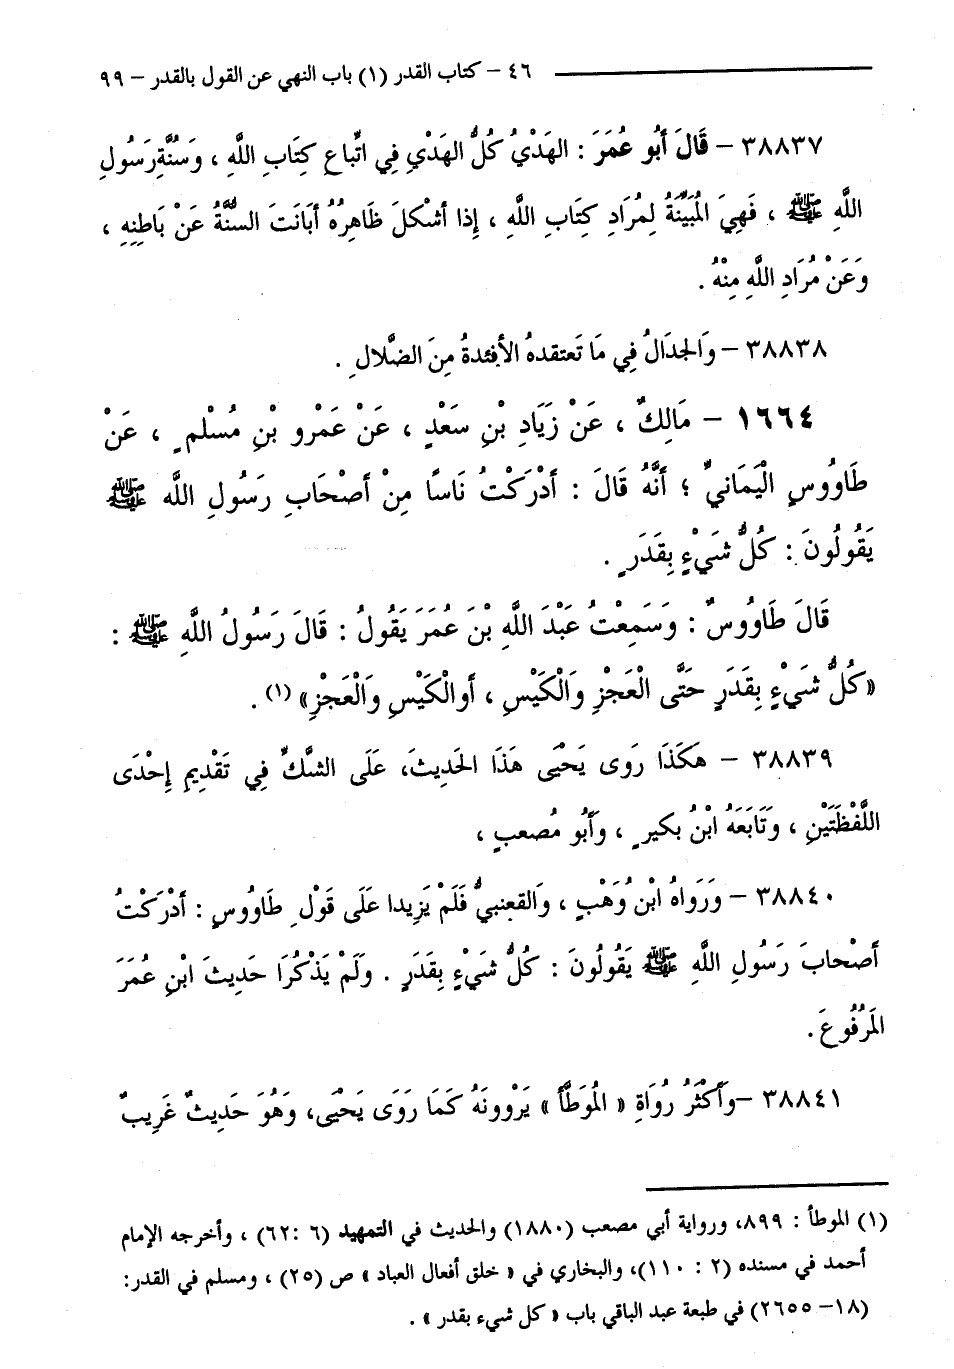 ٤٦ – كتاب القدر (١) باب النهي عن القول بالقدر – ٩٩
٣٨٨٣٧ – قَالَ أَبُو عُمَرَ : الهَدْيُ كُلُّ الهَدْيِ فِي اتِّباعِ كِتَابِ اللَّهِ ، وَسُنَّةِ رَسُولِ
اللَّهِ ﷺ ، فَهِيَ الْمُبَيِّنَةُ لِمُرَادِ كِتَابِ اللَّهِ ، إِذا أَشْكَلَ ظَاهِرُهُ أَبَانَتَ السُّنَّةُ عَنْ بَاطِنِهِ ،
وَعَنْ مُرَادِ اللَّهِ مِنْهُ .
٣٨٨٣٨ – وَالجِدَالُ فِي مَا تَعتقدهُ الأَفئدةُ مِنَ الضَّلالِ .
١٦٦٤ – مَالِكٌ ، عَنْ زِيَادِ بْنِ سَعْدٍ ، عَنْ عَمْرِو بْنِ مُسْلمٍ ، عَنْ
طَاوُوسٍ الْيَمَانيِّ ؛ أَنَّهُ قَالَ : أَدْرَكْتُ نَاسًا مِنْ أَصْحَابِ رَسُولِ اللَّه ﷺ
يَقُولُونَ : كُلُّ شَيْءٍ بِقَدَرٍ .
قَالَ طَاوُوسٌ : وَسَمِعْتُ عَبْدَ اللَّهِ بْنَ عُمَرَ يَقُولُ : قَالَ رَسُولُ اللَّهِ ﷺ :
« كُلُّ شَيْءٍ بِقَدَرٍ حَتَّى الْعَجْزِ وَالْكَيْسِ ، أَوالْكَيْسِ وَالْعَجْزِ» (١) .
٣٨٨٣٩ – هَكَذَا رَوى يَحْيَى هَذَا الحَديثَ، عَلَى الشَّكِّ فِي تَقْدِيمِ إِحْدَى
اللَّفْظَتَيْنِ ، وَتَابَعَهُ ابْنُ بكيرٍ ، وَأَبُو مُصعبٍ ،
٣٨٨٤٠ – وَرَواهُ ابْن وُهَبٍ ، وَالقعنبيُّ فَلَمْ يَزِيدا عَلَى قَوْلِ طَاوُوسٍ : أَدْرَكْتُ
أَصْحابَ رَسُولِ اللَّهِ ﷺ يَقُولُونَ : كُلُّ شَيْءٍ بِقَدَرٍ . وَلَمْ يَذْكُرَا حَديثَ ابْنِ عُمَرَ
المَرْفُوعَ .
٣٨٨٤١ –وَأَكْثَرُ رُوَاةِ « الْمُوَطَّأ » يَرْوونَهُ كَمَا رَوَى يَحْيَى، وَهُوَ حَدِيثٌ غَرِيبٌ
(١) الموطأ : ٨٩٩، ورواية أبي مصعب (١٨٨٠) والحديث في التمهيد (٦ :٦٢) ، وأخرجه الإمام
أحمد في مسنده (٢ : ١١٠)، والبخاري في « خلق أفعال العباد » ص (٢٥) ، ومسلم في القدر:
(١٨– ٢٦٥٥) في طبعة عبد الباقي باب « كل شيء بقدر » .